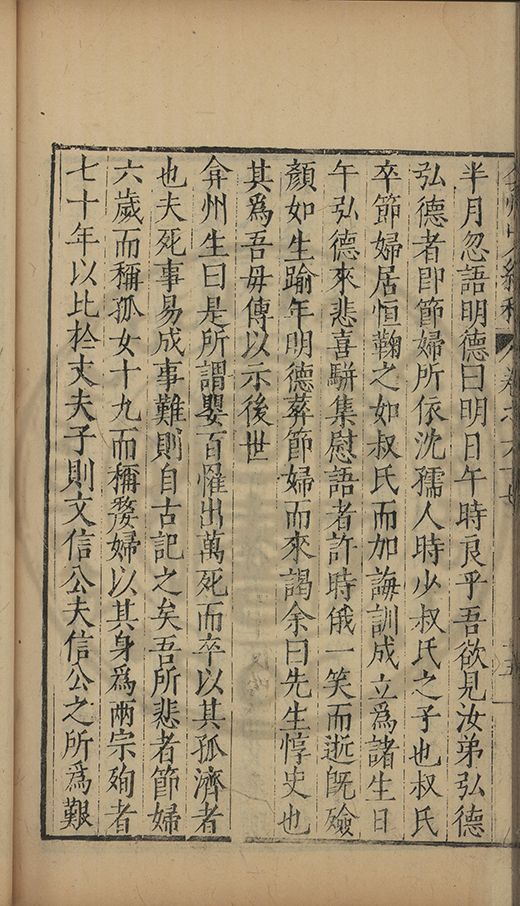 半月忽語明德曰明日午時良乎吾欲見汝弟弘德
弘德者即節婦所依沈孺人時少叔氏之子也叔氏
卒節婦居恒鞠之如叔氏而加誨訓成立爲諸生日
午弘德來悲喜駢集慰語者許時俄一笑而逝旣殮
顏如生踰年明德葬節婦而來謁余曰先生惇史也
其爲吾毋傳以示後世
弇州生曰是所謂嬰百罹出萬死而卒以其孤濟者
也夫死事易成事難則自古記之矣吾所悲者節婦
六歲而稱孤女十九而稱嫠婦以其身爲兩宗殉者
七十年以比於丈夫子則文信公夫信公之所爲艱